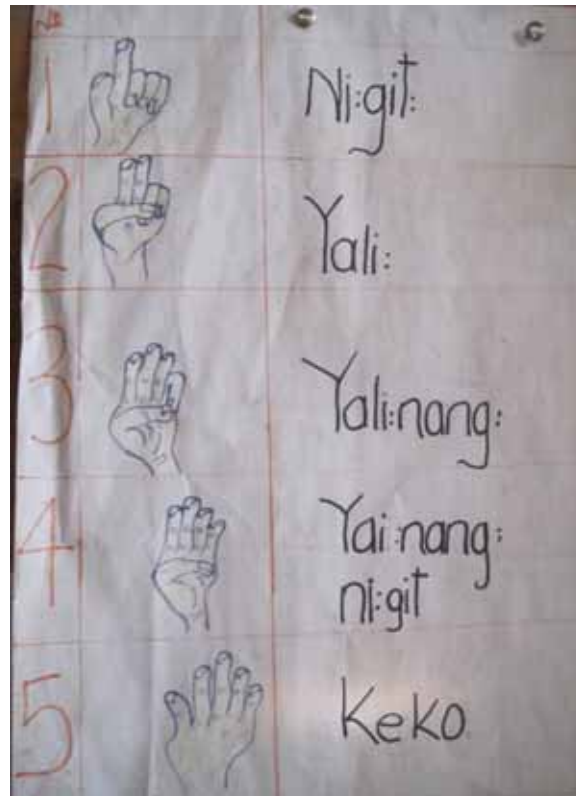 No
1 Ni:git:
2 Yali:
3 Yali:nang:
4 Yai:nang:
ni:git
5 Keko